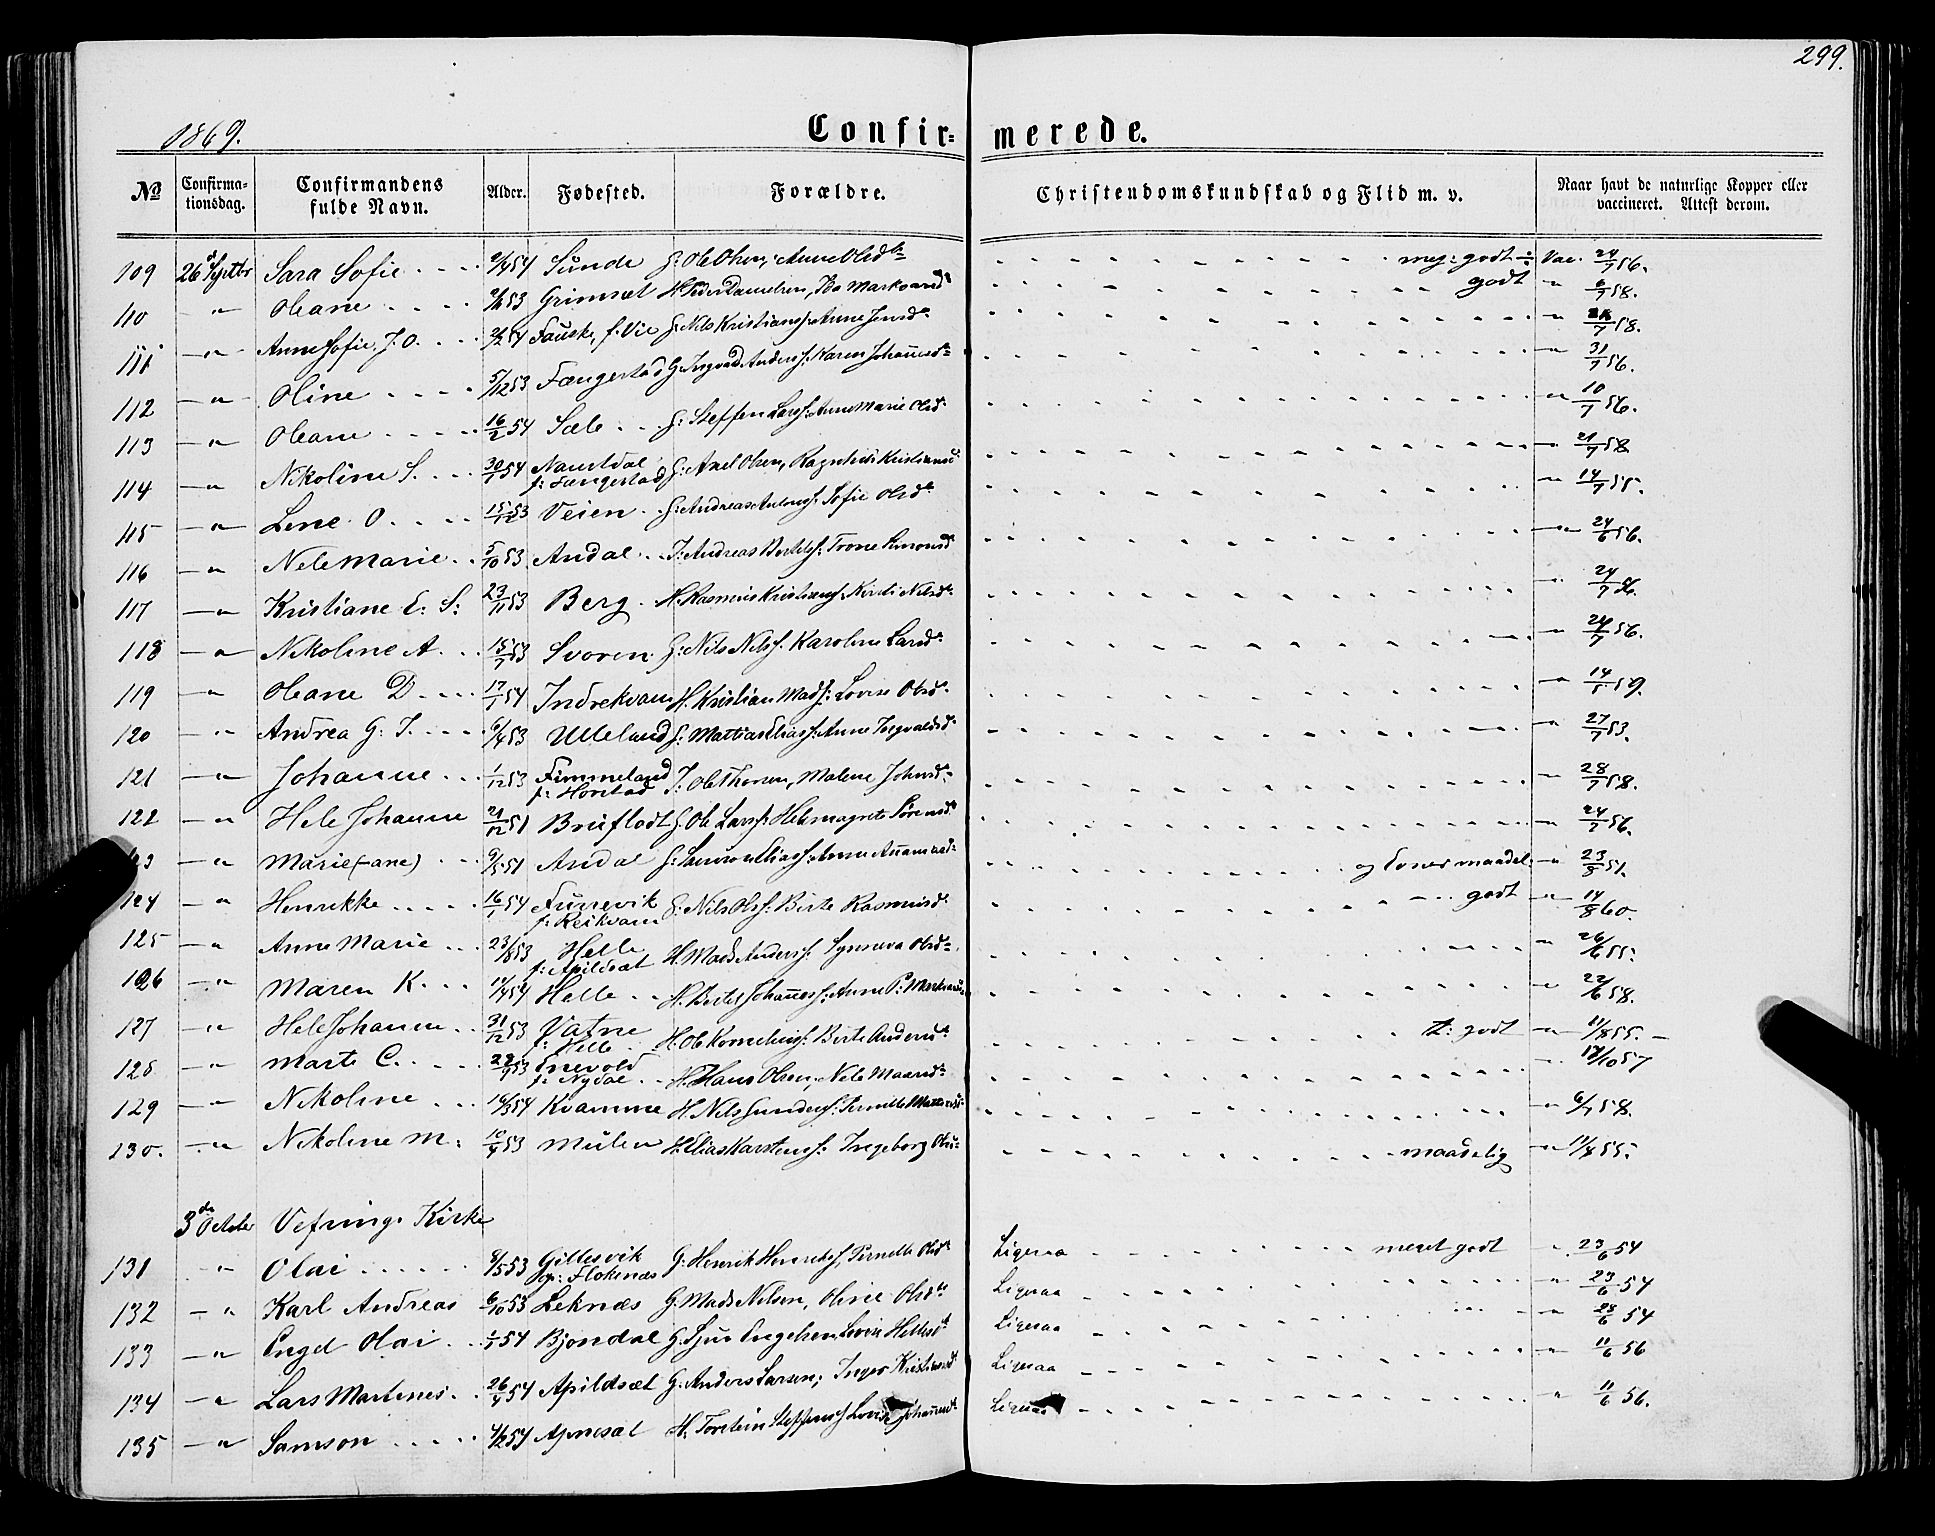 299.
1869.
Confir= merede.
No Confirma=tionsdag. Confirmandens fulde Navn. Alder. Fødested. Forældre. Christendomskundskab og Flid m. v. Naar havt de naturlige Kopper eller vaccineret. Attest derom.
109 26de Septbr Sara Sofie Sunde G: Ole Olsen, Anne Olsd. meg: godt Vac. 24/7 56.
110 " Oleane 53 Grimset H. Peder Danielsen, godt " 6/7 58.
111 " Anne Sofie J. O. 54 Fauske, f: Vie G: Nils Kristians: Anne Jensd. " /7 58.
112 " Oline 5/12 53 Fængestad G. Ingvald Anders: Karen Johannesd. " 31/7 56.
113 " Oleane 16/2 54 Sæle G: Steffen Larss: Anne Marie Olsd. " 10/7 56.
114 " Nikoline S. 30/7 54 Naustdal f: Fængestad G: Axel Olsen, Ragnhild Kristiansd. " 21/7 58
115 " Lene O. 15/12 53 Veien G: Andreas Antons: Sofie Olsd. " 14/7 55.
116 " Nele Marie 5/10 53 Andal I: Andreas Bertels: Trone Simonsd. " 24/6 56.
117 " Kristiane E. S: 23/11 53 Berg H. Rasmus Kristians: Kirsti Nilsd. " 24/7 56.
118 " Nikoline A. 15/7 53 Svoren G: Nils Nilss. Karoline Larsd. " 24/7 56.
119 " Oleane D. 17/1 54 Indrekvam H. Kristian Mads: Lovise Olsd. " 14/1 59.
120 " Andrea G. I. 6/4 53 Ulleland G: Mattias Elias: Anne Ingvaldsd. " 27/7 53.
121 " Johanne 1/12 53 Fimmeland f: Horstad I: Ole Thoresen, Malene Johnsd. " 28/7 58.
122 " Hele Johanne 21/12 51 Bruflodt G. Ole Larss: Helemagrete Sørensd. " 24/7 56.
123 " Marie (-ane) 51 Andal G: Elias: Anne og Evner maadel: " 23/8 51.
124 " Henrikke 16/1 54 Funevik f: Reikvam G: Nils Olss: Berte Rasmusd. godt " 14/8 60.
125 " Anne Marie 23/8 53 Helle f: Apildsæt H. Mads Anderss: Synneva Olsd. " 26/6 55.
126 " Maren K. 54 Helle H. Bertel Johanness: Anne P. " 22/6 58.
127 " Hele Johanne 31/12 53 Vatne f: Helle H. Ole Kornelius: Berte Andersd. t: godt " 11/8 55.
128 " Marte C. 53 Enevold f: Nydal H. Hans Olsen, Nele Maansd. " 17/10 57
129 " Nikoline 16/3 54 Kvamme H. Nils Gunders: Pernille " 6/7 58.
130. " Nikoline M. 10/9 53 Mulen H. Elias Karstens: Ingeborg Olsd. maadelig " 11/8 55.
3de October Vefrings Kirke
131 " Olai 8/5 53 Gillesvik op: Flokenæs G. Henrik Henriks: Pernille Olsd. Ligesaa meget godt " 23/6 54
132 " Karl Andreas 6/10 53 Leknæs G. Mads Nilsen, Oline Olsd. Ligesaa " 23/6 54
133 " Engel Olai 54 Bjondal G. Sjur Engelsen, Lovise Hellesd. Ligesaa " 28/6 54
134 " Lars Martinus 26/4 54 Apildsæt G. Anders Larsen, Inger Kristiansd. Ligesaa " 11/6 56
135 " Samson 4/2 54 Apnesæt H. Torstein Steffens: Lovise Johannesd. Ligesaa " 11/6 56.